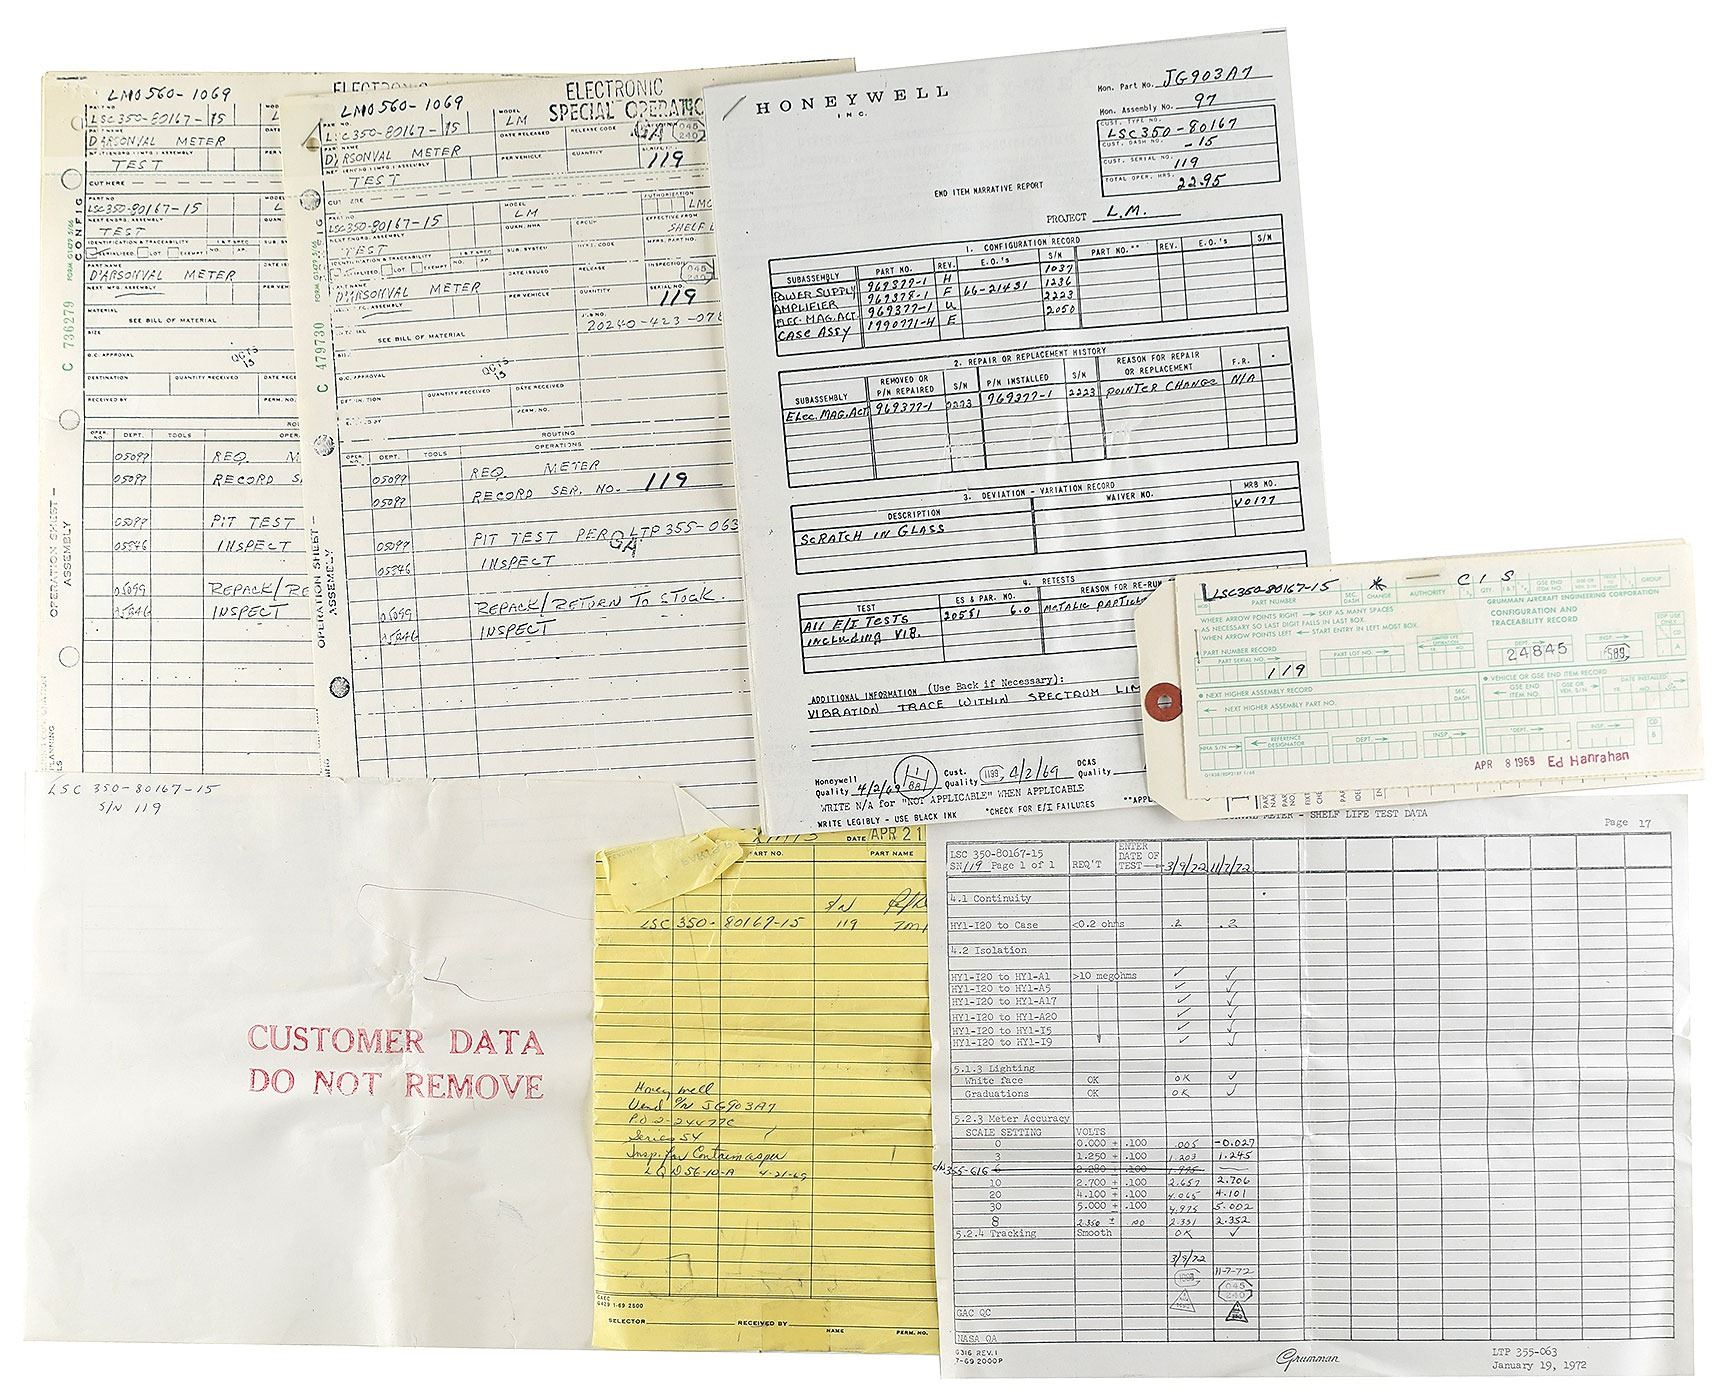 LMO560-1069
PART NO
LSC350-80167-15
PART NAME
D'ARSONVAL METER
TEST
CUT HERE
PART NO
LSC350-80167-15
NEXT ENGRG. ASSEMBLY
TEST
IDENTIFICATION & TRACEABILITY
SERIALIZED LOT EXEMPT
PART NAME
D'ARSONVAL METER
NEXT MFG. ASSEMBLY
MATERIAL
SEE BILL OF MATERIAL
SIZE
Q.C. APPROVAL
QCTS
13
DESTINATION QUANTITY RECEIVED
RECEIVED BY PERM. NO.
OPER. NO. DEPT. TOOLS
05099 REQ. M
05099 RECORD S
05099 PIT TEST
05346 INSPECT
05099 REPACK/RE
05346 INSPECT
CONFIG
FORM G1429 5/66
C 736279
OPERATION SHEET -
ASSEMBLY
LMO560-1069
ELECTRONIC
SPECIAL OPERATIO
LSC350-80167-15
MODEL
LM
DATE RELEASED RELEASE CODE
PART NAME
D'ARSONVAL METER
PER VEHICLE QUANTITY
119
TEST
LSC350-80167-15
MODEL
LM
AUTHORIZATION
LMO
EFFECTIVE FROM
SHELF L
TEST
SUB. SYSTEM
IDENTIFICATION & TRACEABILITY
DATE ISSUED RELEASE INSPECTION
D'ARSONVAL METER
PER VEHICLE QUANTITY SERIAL NO.
119
20240-423-078
SEE BILL OF MATERIAL
Q.C. APPROVAL
QCTS
13
QUANTITY RECEIVED DATE RECEIVED
PERM. NO.
ROUTING
OPER. NO. DEPT. TOOLS OPERATIONS
05099 REQ. METER
05099 RECORD SER. NO. 119
05099 PIT TEST PER LTP 355-063
GA
05346 INSPECT
05099 REPACK/RETURN TO STOCK.
05346 INSPECT
C 479730
OPERATION SHEET -
ASSEMBLY
HONEYWELL
INC.
Hon. Part No. JG903A7
Hon. Assembly No. 97
CUST. TYPE NO.
LSC350-80167
CUST. DASH NO. -15
CUST. SERIAL NO. 119
TOTAL OPER. HRS. 22.95
END ITEM NARRATIVE REPORT
PROJECT L.M.
1. CONFIGURATION RECORD
SUBASSEMBLY PART NO. REV. E.O.'s S/N PART NO.** REV. E.O.'s S/N
POWER SUPPLY 969379-1 H 1037
AMPLIFIER 969378-1 F 66-21431 1236
ELEC. MAG. ACT. 969377-1 U 2223
CASE ASSY 1990771-4 E 2050
2. REPAIR OR REPLACEMENT HISTORY
SUBASSEMBLY REMOVED OR P/N REPAIRED S/N P/N INSTALLED S/N REASON FOR REPAIR OR REPLACEMENT F.R.
ELEC. MAG. ACT 969377-1 2223 969377-1 2223 POINTER CHANGE N/A
3. DEVIATION - VARIATION RECORD
DESCRIPTION WAIVER NO. MRB NO.
SCRATCH IN GLASS V0177
4. RETESTS
TEST ES & PAR. NO. REASON FOR RE-RUN
All E/I TESTS INCLUDING VIB. 20551 6.0 METALIC PARTICLE
ADDITIONAL INFORMATION (Use Back if Necessary):
VIBRATION TRACE WITHIN SPECTRUM LIM
Honeywell Quality 4/2/69 Cust. Quality 1199 4/2/69 DCAS Quality
WRITE N/A for "NOT APPLICABLE" WHEN APPLICABLE
WRITE LEGIBLY - USE BLACK INK *CHECK FOR E/I FAILURES **APPL
LSC350-80167-15 * C I S
PART NUMBER SEC. DASH CHANGE AUTHORITY QTY. GSE END ITEM NO. GROUP
WHERE ARROW POINTS RIGHT → SKIP AS MANY SPACES
AS NECESSARY SO LAST DIGIT FALLS IN LAST BOX.
WHEN ARROW POINTS LEFT ← START ENTRY IN LEFT MOST BOX.
GRUMMAN AIRCRAFT ENGINEERING CORPORATION
CONFIGURATION AND
TRACEABILITY RECORD
PART NUMBER RECORD
PART SERIAL NO. → PART LOT NO. → DEPT. → INSP. →
119 24845 589
• NEXT HIGHER ASSEMBLY RECORD
← NEXT HIGHER ASSEMBLY PART NO. SEC. DASH
• VEHICLE OR GSE END ITEM RECORD
GSE END ITEM NO. GSE OR VEH. S/N → DATE INSTALLED
NHA S/N → REFERENCE DESIGNATOR DEPT. → INSP. →
APR 8 1969 Ed Hanrahan
LSC 350-80167-15
S/N 119
CUSTOMER DATA
DO NOT REMOVE
DATE APR 21
PART NO. PART NAME
S/N
LSC 350-80167-15 119
Honeywell
Vend P/N JG903A7
P.O 2-24477C
Series 54
Insp. for Contam as per
LQD56-10-A 4-21-69
GAEC
G429 1-69 2500
SELECTOR RECEIVED BY
NAME PERM. NO.
METER - SHELF LIFE TEST DATA
Page 17
LSC 350-80167-15
SN 119 Page 1 of 1 REQ'T ENTER DATE OF TEST → 3/9/72 11/7/72
4.1 Continuity
HY1-I20 to Case <0.2 ohms .2 .2
4.2 Isolation
HY1-I20 to HY1-A1 >10 megohms ✓ ✓
HY1-I20 to HY1-A5 ✓ ✓
HY1-I20 to HY1-A17 ✓ ✓
HY1-I20 to HY1-A20 ✓ ✓
HY1-I20 to HY1-I5 ✓ ✓
HY1-I20 to HY1-I9 ✓ ✓
5.1.3 Lighting
White face OK OK ✓
Graduations OK OK ✓
5.2.3 Meter Accuracy
SCALE SETTING VOLTS
0 0.000 ± .100 .005 -0.027
3 1.250 ± .100 1.203 1.245
355-616 6 2.280 ± .100 1.995
10 2.700 ± .100 2.657 2.706
20 4.100 ± .100 4.065 4.101
30 5.000 ± .100 4.975 5.002
8 2.350 ± .100 2.331 2.352
5.2.4 Tracking Smooth OK ✓
3/9/72
11-7-72
045
240
GAC QC
NASA QA
G316 REV. 1
7-69 2000P
Grumman
LTP 355-063
January 19, 1972